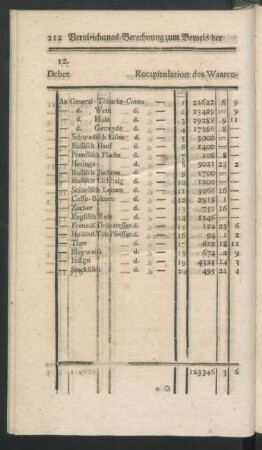 212 Vergleichungs-Berechnung zum Beweis der
12.
Debet Recapitulation des Waaren-
An General-Tobacks-Conto — 1 22627 6 9
— d. Wein d. — 2 23429 9
— d. Holz d. — 3 29288 9 11
— d. Getreyde d. — 4 17266 8
— Schwedisch Eisen d. — 5 5000
— Russisch Hanf d. — 6 1400
— Preussisch Flachs d. — 7 108 8
— Heringe d. — 8 9021 23 2
— Russisch Juchten d. — 9 1700
— Russisch Lichttalg d. — 10 1200
— Schlesisch Leinen d. — 11 3966 16
— Caffe-Bohnen d. — 12 2918 1
— Zucker d. — 13 757 16
— Englisch Bley d. — 14 1246
— Französ. Delicatessen d. — 15 124 23 6
— Holländ. Tob. Pfeiffen d. — 16 94 1 2
— Thee d. — 17 612 18 11
— Bleyweiß d. — 18 674 2 9
— Indigo d. — 19 4325 14 3
— Stockfisch d. — 20 495 21 4
123346 3 6